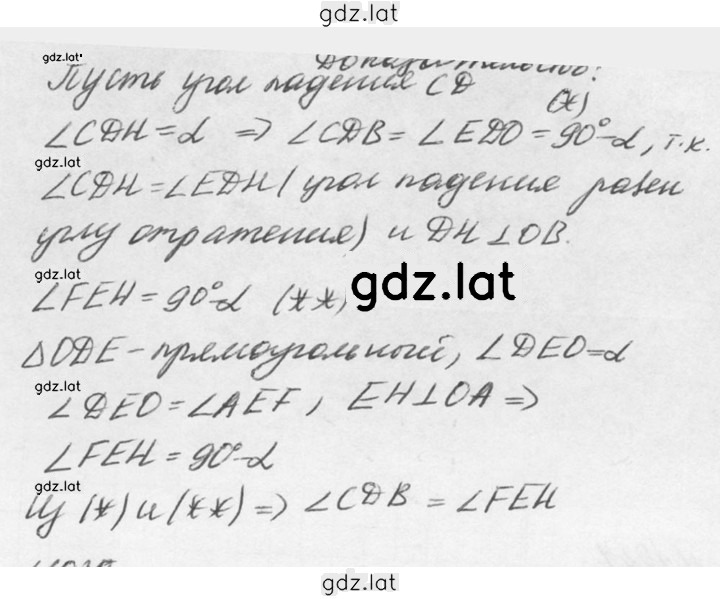 gdz.lat
gdz.lat
Доказательство:
Пусть угол падения CD
(*)
∠CDH = α ⇒ ∠CDB = ∠EDO = 90°-α, т.к.
gdz.lat
∠CDH = ∠EDH ( угол падения равен
углу отражения) и DH ⊥ OB.
gdz.lat
∠FEH = 90°-α (**)
gdz.lat
△ODE - прямоугольный, ∠DEO = α
gdz.lat
∠DEO = ∠AEF, EH ⊥ OA ⇒
∠FEH = 90°-α
gdz.lat
Из (*) и (**) ⇒ ∠CDB = ∠FEH
gdz.lat